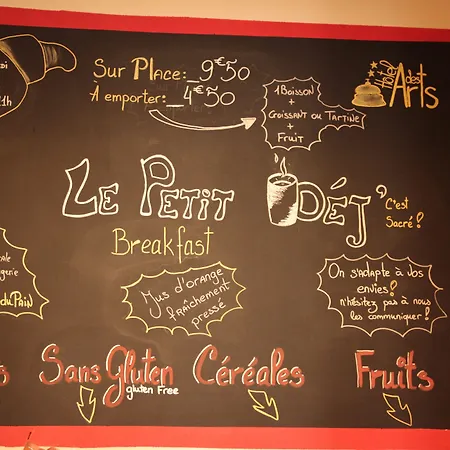 di
1h
Sur Place: 9€50
A emporter: 4€50
1 Boisson
+
Croissant ou Tartine
+
Fruit
Hôtel
des
Arts
Le Petit Déj'
C'est
Sacré!
Breakfast
ale
gerie
du Pain
Jus d'orange
fraîchement
pressé
On s'adapte à vos
envies!
N'hésitez pas à nous
les communiquer!
s
Sans Gluten
gluten Free
Céréales
Fruits